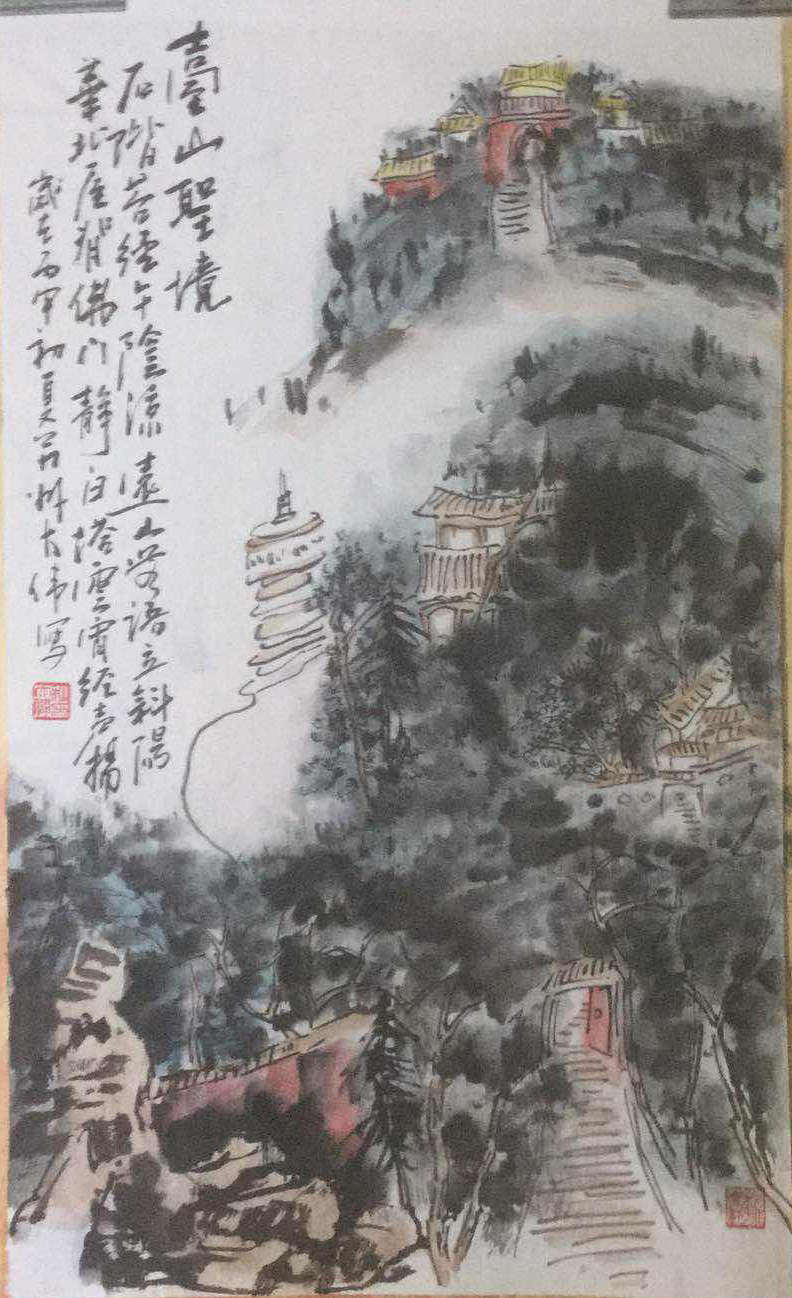 臺山聖境
石階苔經午陰涼遠山無語立斜陽
華北屋脊佛門靜白塔雲霄經声揚
歲在丙申初夏 州大伟写